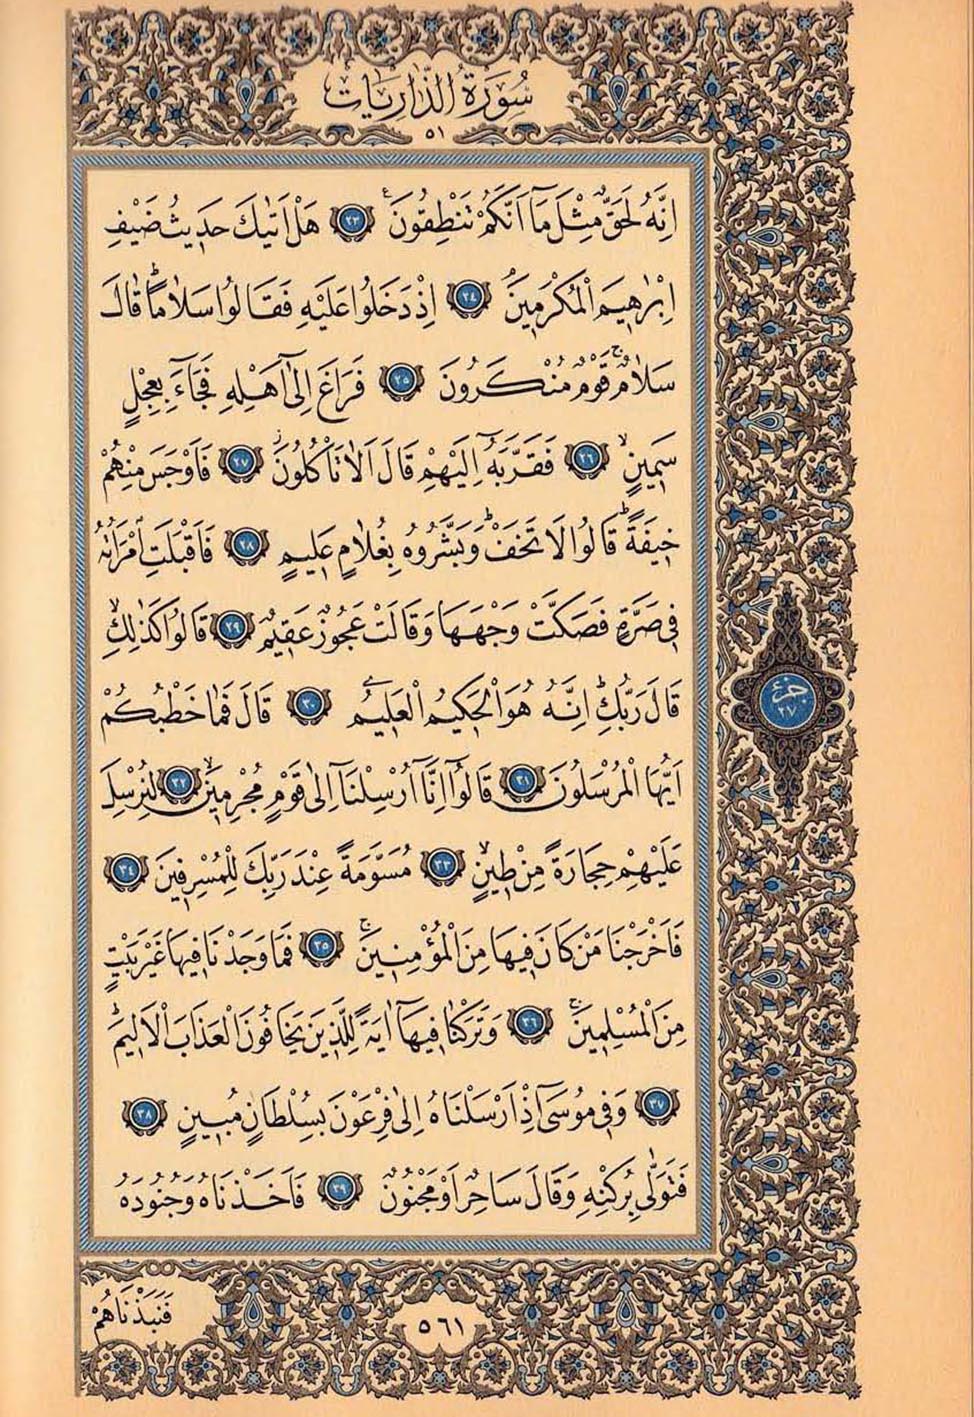 سُورَةُ الذَّارِيَاتِ
٥١
اِنَّهُ لَحَقٌّ مِثْلَ مَٓا اَنَّكُمْ تَنْطِقُونَ ۟ ﴿٢٣﴾ هَلْ اَتٰيكَ حَد۪يثُ ضَيْفِ
اِبْرٰه۪يمَ الْمُكْرَم۪ينَۢ ﴿٢٤﴾ اِذْ دَخَلُوا عَلَيْهِ فَقَالُوا سَلَامًاۜ قَالَ
سَلَامٌۚ قَوْمٌ مُنْكَرُونَ ﴿٢٥﴾ فَرَاغَ اِلٰٓى اَهْلِه۪ فَجَٓاءَ بِعِجْلٍ
سَم۪ينٍۙ ﴿٢٦﴾ فَقَرَّبَهُٓ اِلَيْهِمْ قَالَ اَلَا تَأْكُلُونَۘ ﴿٢٧﴾ فَاَوْجَسَ مِنْهُمْ
خ۪يفَةًۜ قَالُوا لَا تَخَفْۜ وَبَشَّرُوهُ بِغُلَامٍ عَل۪يمٍ ﴿٢٨﴾ فَاَقْبَلَتِ امْرَاَتُهُ
ف۪ي صَرَّةٍ فَصَكَّتْ وَجْهَهَا وَقَالَتْ عَجُوزٌ عَق۪يمٌ ﴿٢٩﴾ قَالُوا كَذٰلِكِۙ
قَالَ رَبُّكِۜ اِنَّهُ هُوَ الْحَك۪يمُ الْعَل۪يمُ ﴿٣٠﴾ قَالَ فَمَا خَطْبُكُمْ
اَيُّهَا الْمُرْسَلُونَ ﴿٣١﴾ قَالُٓوا اِنَّٓا اُرْسِلْنَٓا اِلٰى قَوْمٍ مُجْرِم۪ينَۙ ﴿٣٢﴾ لِنُرْسِلَ
عَلَيْهِمْ حِجَارَةً مِنْ ط۪ينٍۙ ﴿٣٣﴾ مُسَوَّمَةً عِنْدَ رَبِّكَ لِلْمُسْرِف۪ينَ ﴿٣٤﴾
فَاَخْرَجْنَا مَنْ كَانَ ف۪يهَا مِنَ الْمُؤْمِن۪ينَۚ ﴿٣٥﴾ فَمَا وَجَدْنَا ف۪يهَا غَيْرَ بَيْتٍ
مِنَ الْمُسْلِم۪ينَۚ ﴿٣٦﴾ وَتَرَكْنَا ف۪يهَٓا اٰيَةً لِلَّذ۪ينَ يَخَافُونَ الْعَذَابَ الْاَل۪يمَۜ
﴿٣٧﴾ وَف۪ي مُوسٰٓى اِذْ اَرْسَلْنَاهُ اِلٰى فِرْعَوْنَ بِسُلْطَانٍ مُب۪ينٍ ﴿٣٨﴾
فَتَوَلّٰى بِرُكْنِه۪ وَقَالَ سَاحِرٌ اَوْ مَجْنُونٌ ﴿٣٩﴾ فَاَخَذْنَاهُ وَجُنُودَهُ
جزء
٢٧
فَنَبَذْنَاهُمْ
٥٦١